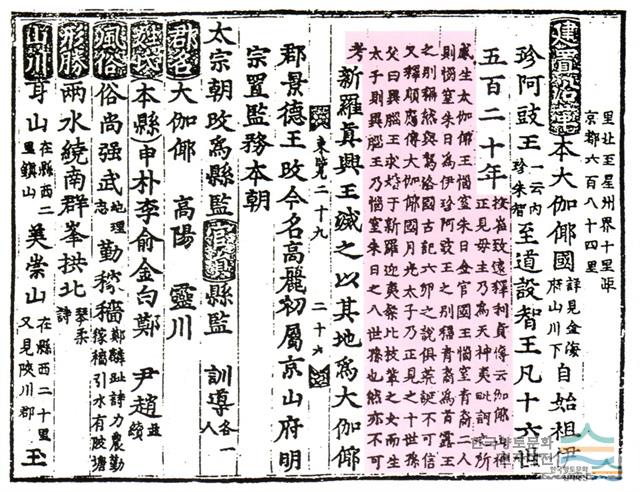 里北至星州界十里距
京都六百八十四里
建置沿革 本大伽倻國 詳見金海府山川下 自始祖伊
珍阿豉王 一云內珍朱智 至道設智王凡十六世
五百二十年 按崔致遠釋利貞傳云伽倻山神
正見母主乃爲天神夷毗訶之所
感生大伽倻王惱窒朱日金官國王惱窒靑裔二人
則惱窒朱日爲伊珍阿豉王之別稱靑裔爲首露王
之別稱然與駕洛國古記六卵之說俱荒誕不可信
又釋順應傳大伽倻國月光太子乃正見之十世孫
父曰異腦王求婚于新羅迎夷粲比枝輩之女而生
太子則異腦王乃惱窒朱日之八世孫也然亦不可
考 新羅眞興王滅之以其地爲大伽倻
東覽二十九 二十六
郡景德王改今名高麗初屬京山府明
宗置監務本朝
太宗朝改爲縣監 官員 縣監 訓導 各一人
郡名 大伽倻 高陽 靈川
姓氏 本縣 申朴李俞金白鄭 尹趙 並續
風俗 俗尚强武 地理志 勤稼穡 鄭麟趾詩力農勤稼穡引水有陂塘
形勝 兩水繞南群峯拱北 琴柔詩
山川 耳山 在縣西二里鎭山 美崇山 在縣西二十里又見陜川郡 玉
한국향토문화